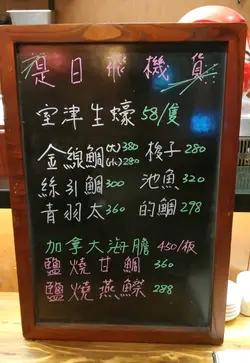 是日飛機貨
室津生蠔 58/隻
金線鯛(大)380 (小)280 梭子 280
絲引鯛 300 池魚 320
青羽太 360 的鯛 278
加拿大海膽 450/板
鹽燒甘鯛 360
鹽燒燕鰶 288